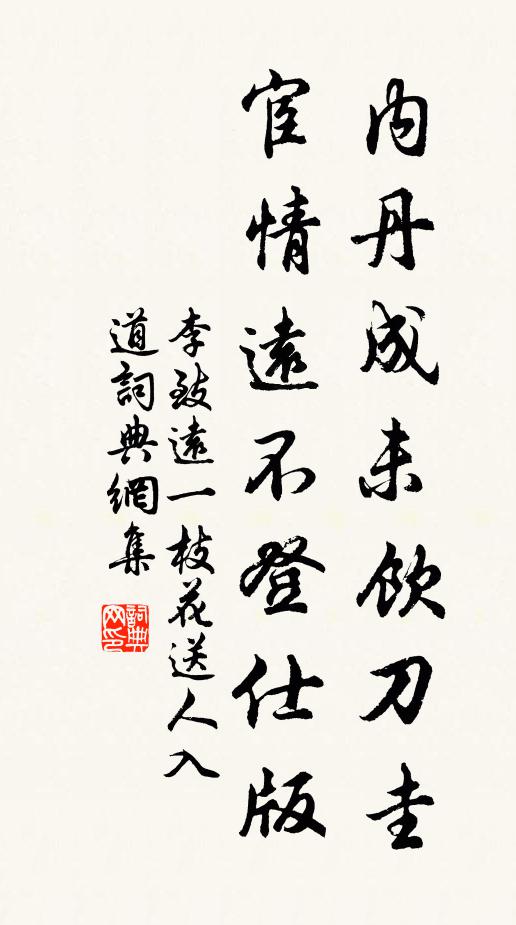 內丹成未飲刀圭
宦情遠不登仕版
李致遠一枝花送人入
道詞典網集
詞典
网印